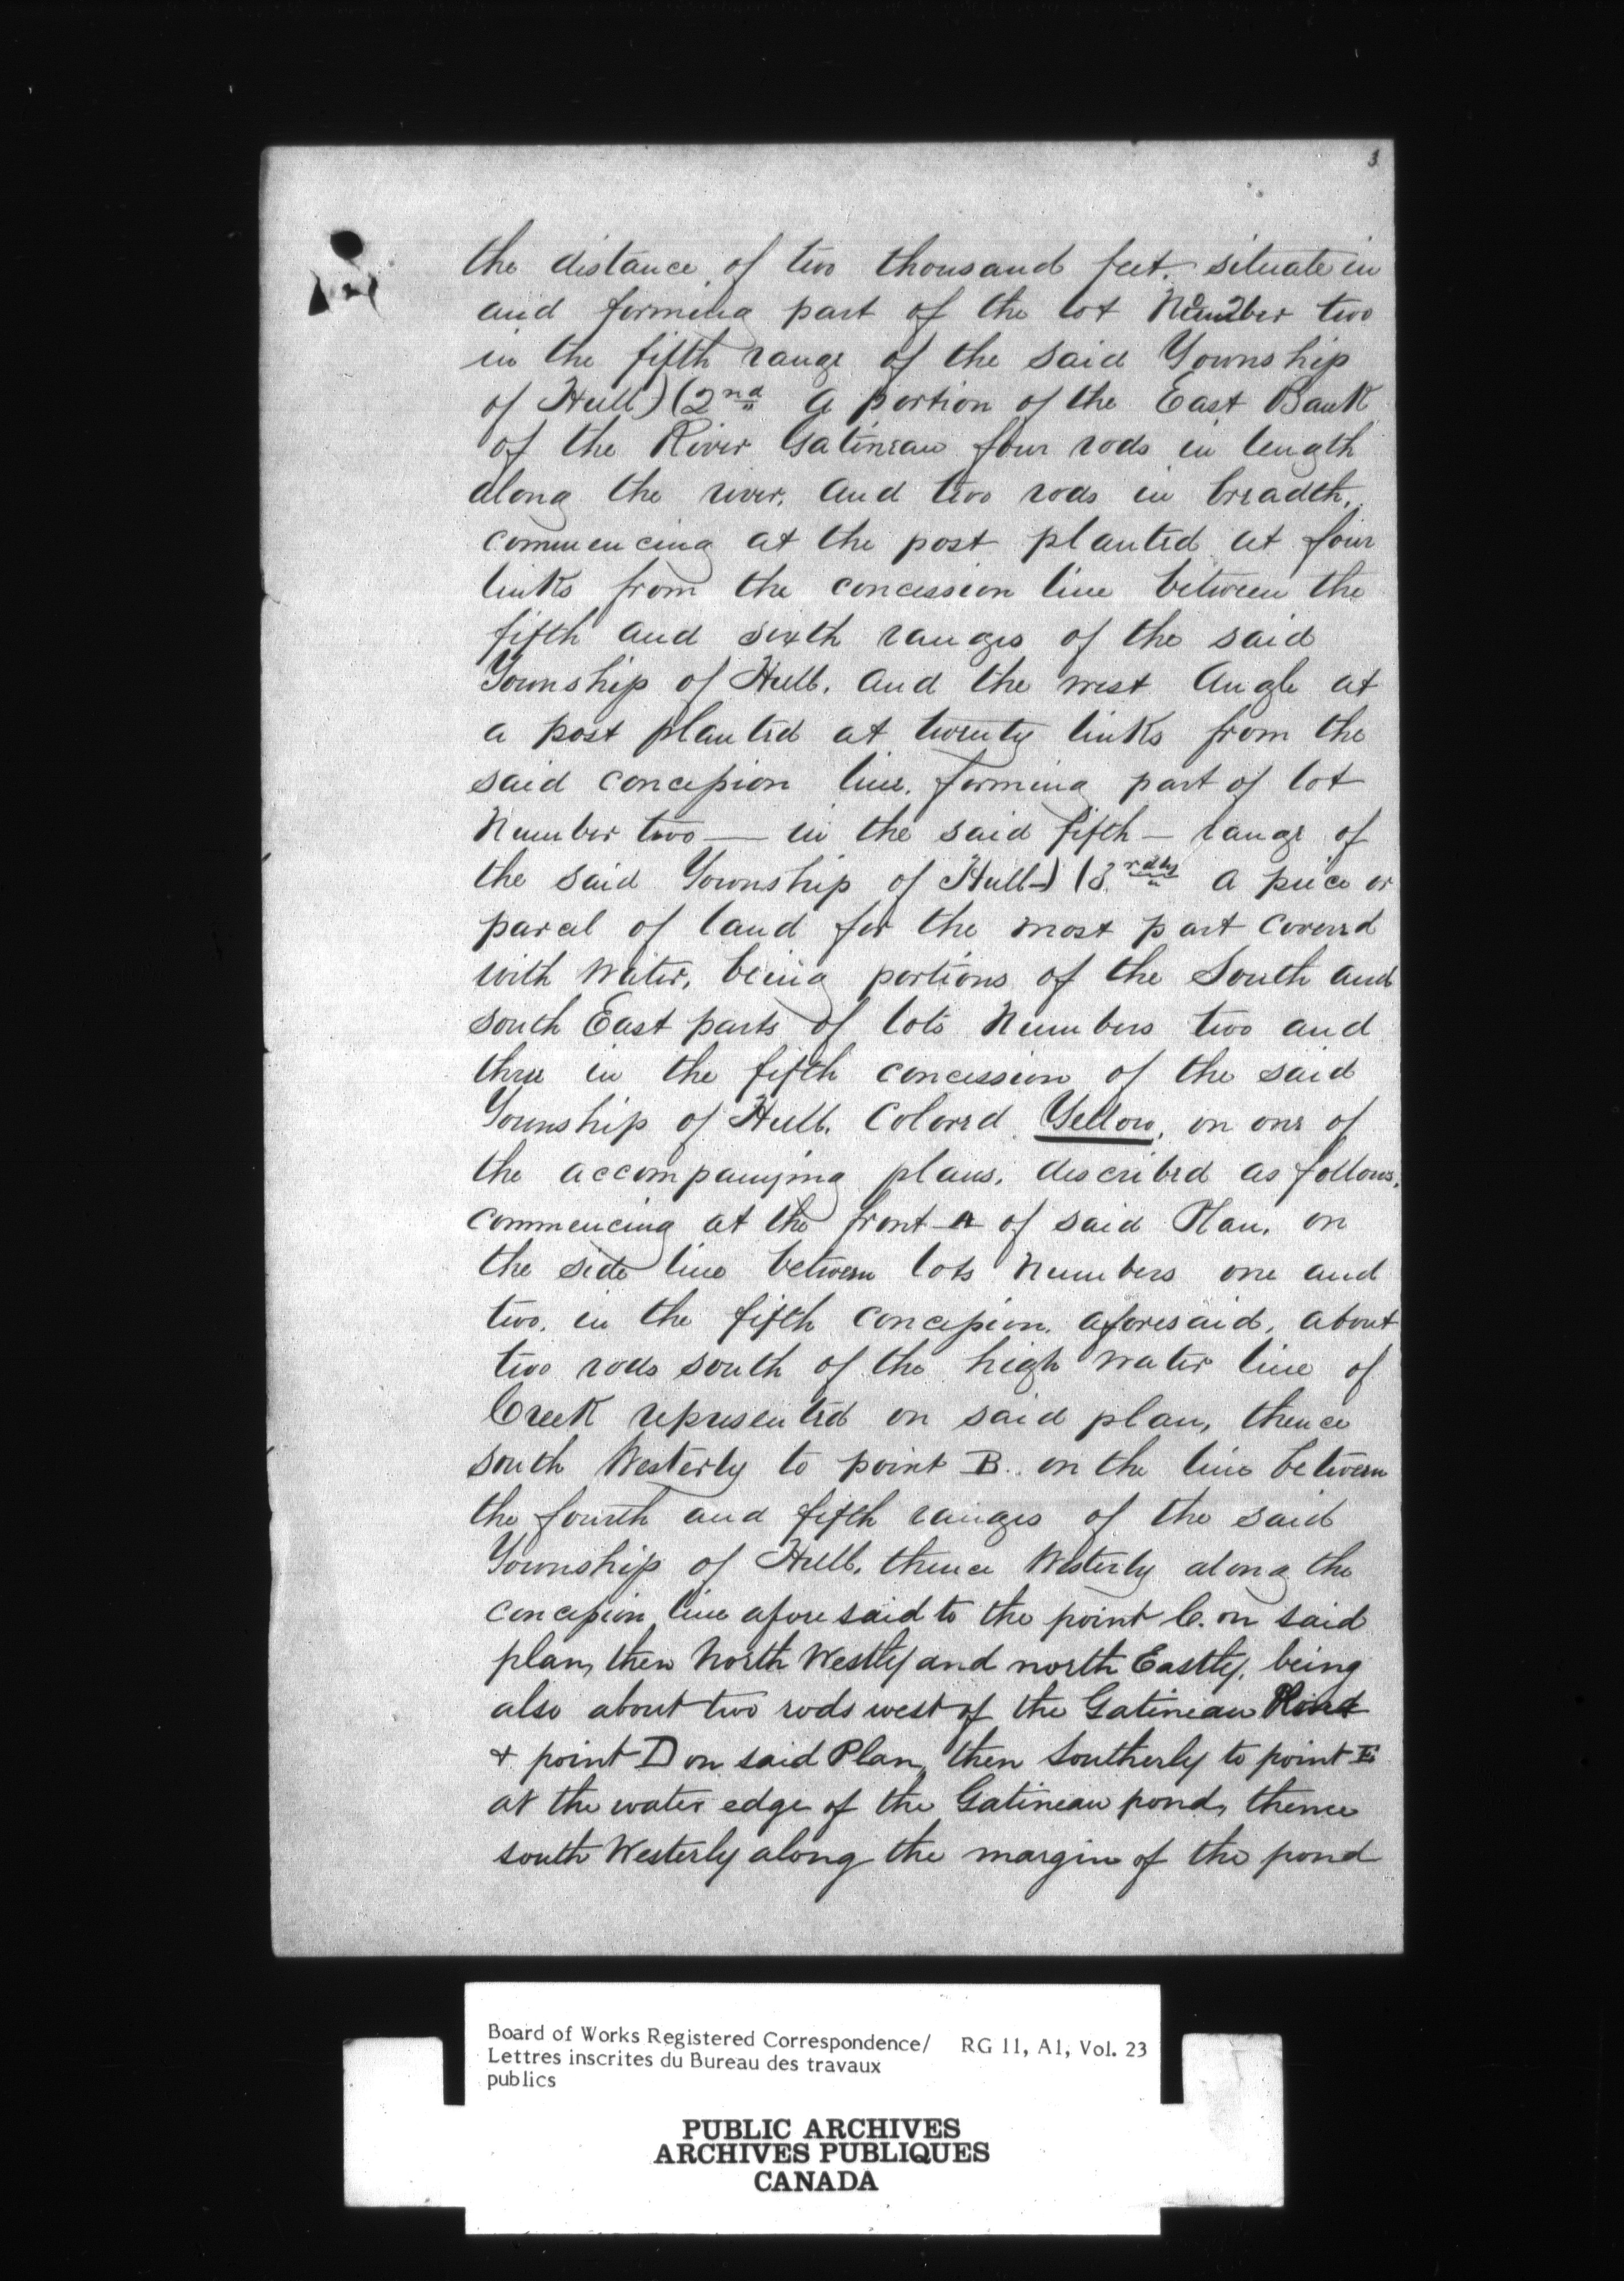 3
the distance of two thousand feet. situate in
and forming part of the lot Number two
in the fifth range of the said Township
of Hull) (2nd a portion of the East Bank
of the River Gatineau four rods in length
along the river, and two rods in breadth,
commencing at the post planted at four
links from the concession line between the
fifth and sixth ranges of the said
Township of Hull, and the west Angle at
a post planted at twenty links from the
said concession line, forming part of lot
Number two — in the said fifth — range of
the said Township of Hull—) (3rdly a piece or
parcel of land for the most part covered
with Water, being portions of the South and
South East parts of lots Numbers two and
three in the fifth concession of the said
Township of Hull, Colored Yellow, on one of
the accompanying plans, described as follows,
commencing at the front A of said Plan, on
the side line between lots Numbers one and
two, in the fifth concession, aforesaid, about
two rods south of the high Water line of
Creek represented on said plan, thence
South Westerly to point B. on the line between
the fourth and fifth ranges of the said
Township of Hull, thence Westerly along the
concession line aforesaid to the point C. on said
plan, then North Westly and north Eastly, being
also about two rods west of the Gatineau
+ point D on said Plan, then Southerly to point E
at the water edge of the Gatineau pond, thence
south Westerly along the margin of the pond
Board of Works Registered Correspondence/ RG 11, A1, Vol. 23
Lettres inscrites du Bureau des travaux
publics
PUBLIC ARCHIVES
ARCHIVES PUBLIQUES
CANADA